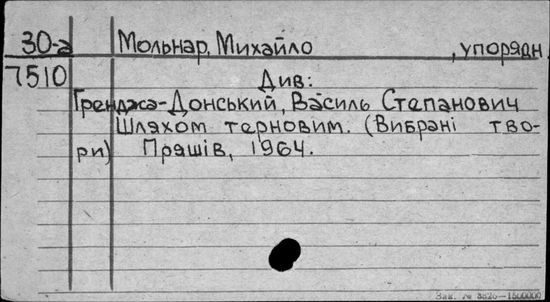 30-а Мольнар, Михайло, упорядн.
7510 Див:
Ґренджа-Донський, Василь Степанович
Шляхом терновим. (Вибрані тво-
ри) Пряшів, 1964.
Зак. № 8526—1500000